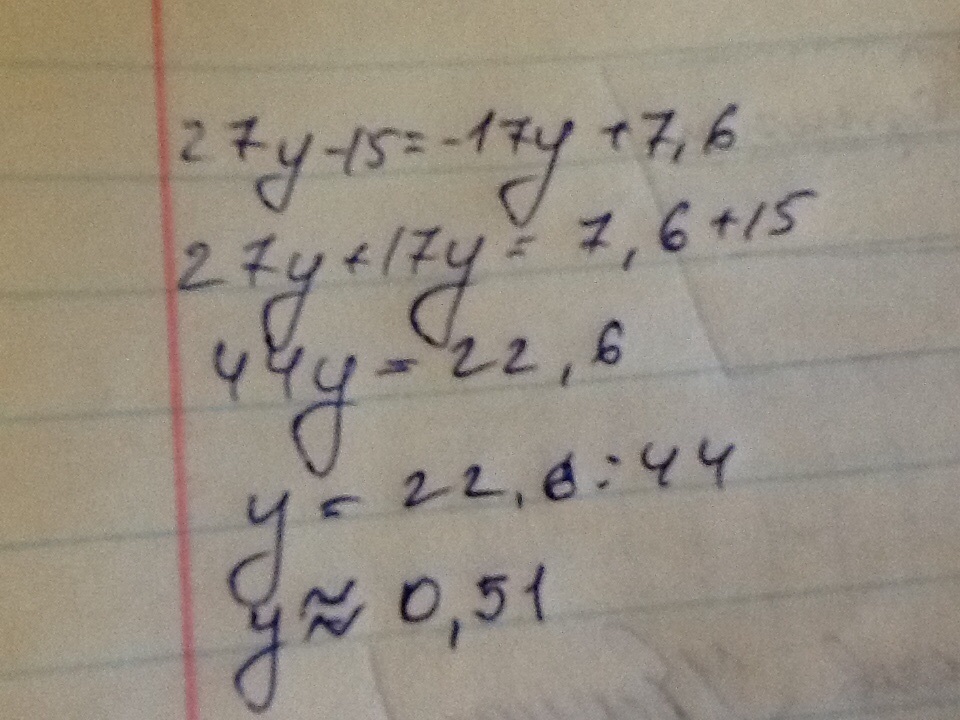 27y-15=-17y+7,6
27y+17y=7,6+15
44y=22,6
y=22,6:44
y≈0,51